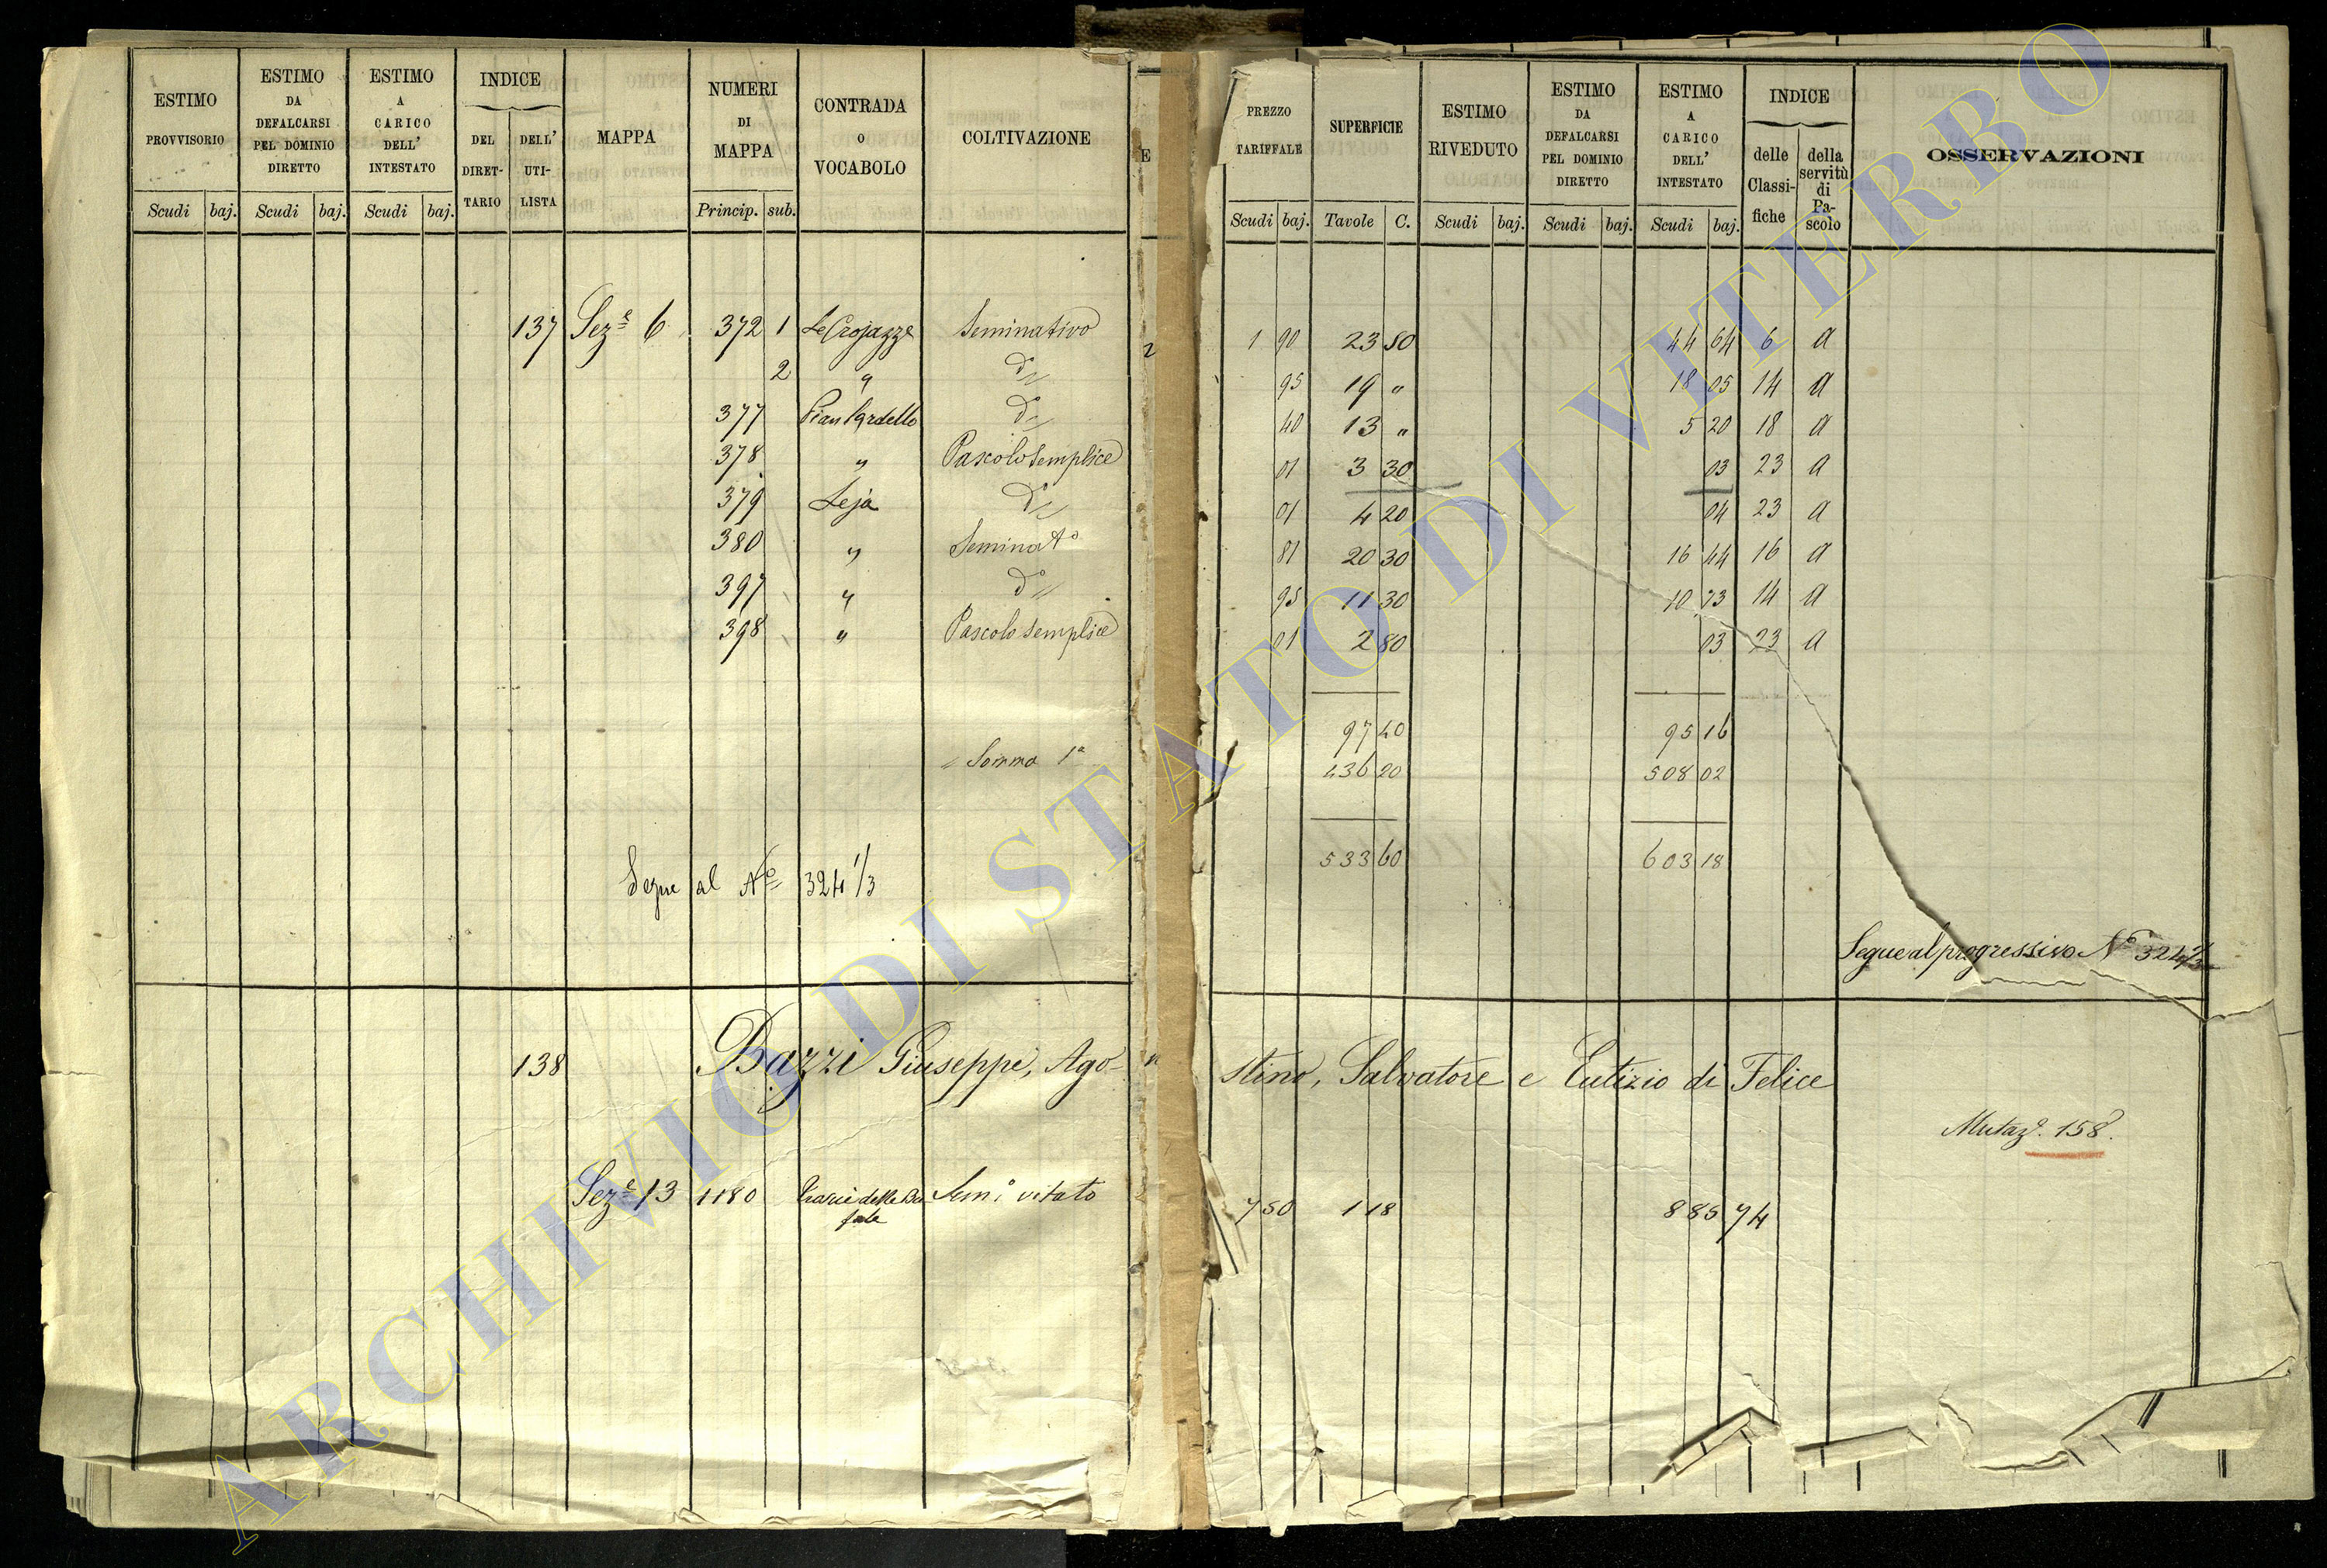 ESTIMO PROVVISORIO
Scudi baj.
ESTIMO DA DEFALCARSI PEL DOMINIO DIRETTO
Scudi baj.
ESTIMO A CARICO DELL' INTESTATO
Scudi baj.
INDICE
DEL DIRET-TARIO
DELL' UTI-LISTA
MAPPA
NUMERI DI MAPPA
Princip. sub.
CONTRADA o VOCABOLO
COLTIVAZIONE
E
PREZZO TARIFFALE
Scudi baj.
SUPERFICIE
Tavole C.
ESTIMO RIVEDUTO
Scudi baj.
ESTIMO DA DEFALCARSI PEL DOMINIO DIRETTO
Scudi baj.
ESTIMO A CARICO DELL' INTESTATO
Scudi baj.
INDICE
delle Classi-fiche
della servitù di Pa-scolo
OSSERVAZIONI
137 Sez.e 6 372 1 Le Crojazze Seminativo 1 90 23 50 44 64 6 a
2 " do 95 19 " 18 05 14 a
377 do 40 13 " 5 20 18 a
378 " Pascolo semplice 01 3 30 03 23 a
379 Leja do 01 4 20 04 23 a
380 " Seminato 81 20 30 16 44 16 a
397 " do 95 11 30 10 73 14 a
398 " Pascolo semplice 01 2 80 03 23 a
97 40 95 16
Somma 1a 436 20 508 02
533 60 603 18
Segue al No 324 1/3
Segue al progressivo No 324
138 Bazzi Giuseppe, Ago-stino, Salvatore e Eutizio di Felice
Mutaz. 158.
Sez.e 13 1180 Sem.o vitato 7 50 1 18 885 74
ARCHIVIO DI STATO DI VITERBO